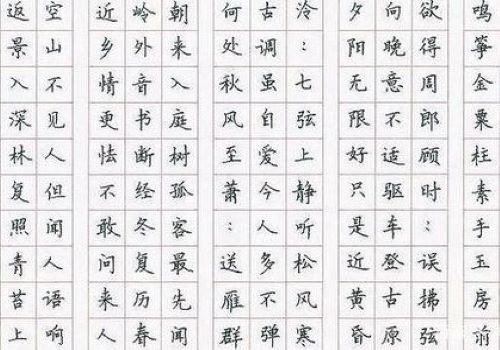 鸣筝金粟柱素手玉房前
欲得周郎顾时：误拂弦
向晚意不适驱车登古原
夕阳无限好只是近黄昏
泠：七弦上静听松风寒
古调虽自爱今人多不弹
何处秋风至萧：送雁群
朝来入庭树孤客最先闻
岭外音书断经冬复历春
近乡情更怯不敢问来人
空山不见人但闻人语响
返景入深林复照青苔上